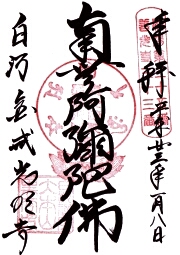 奉拝 平成廿三年一月八日
南無阿彌陀佛
白河 金戒光明寺